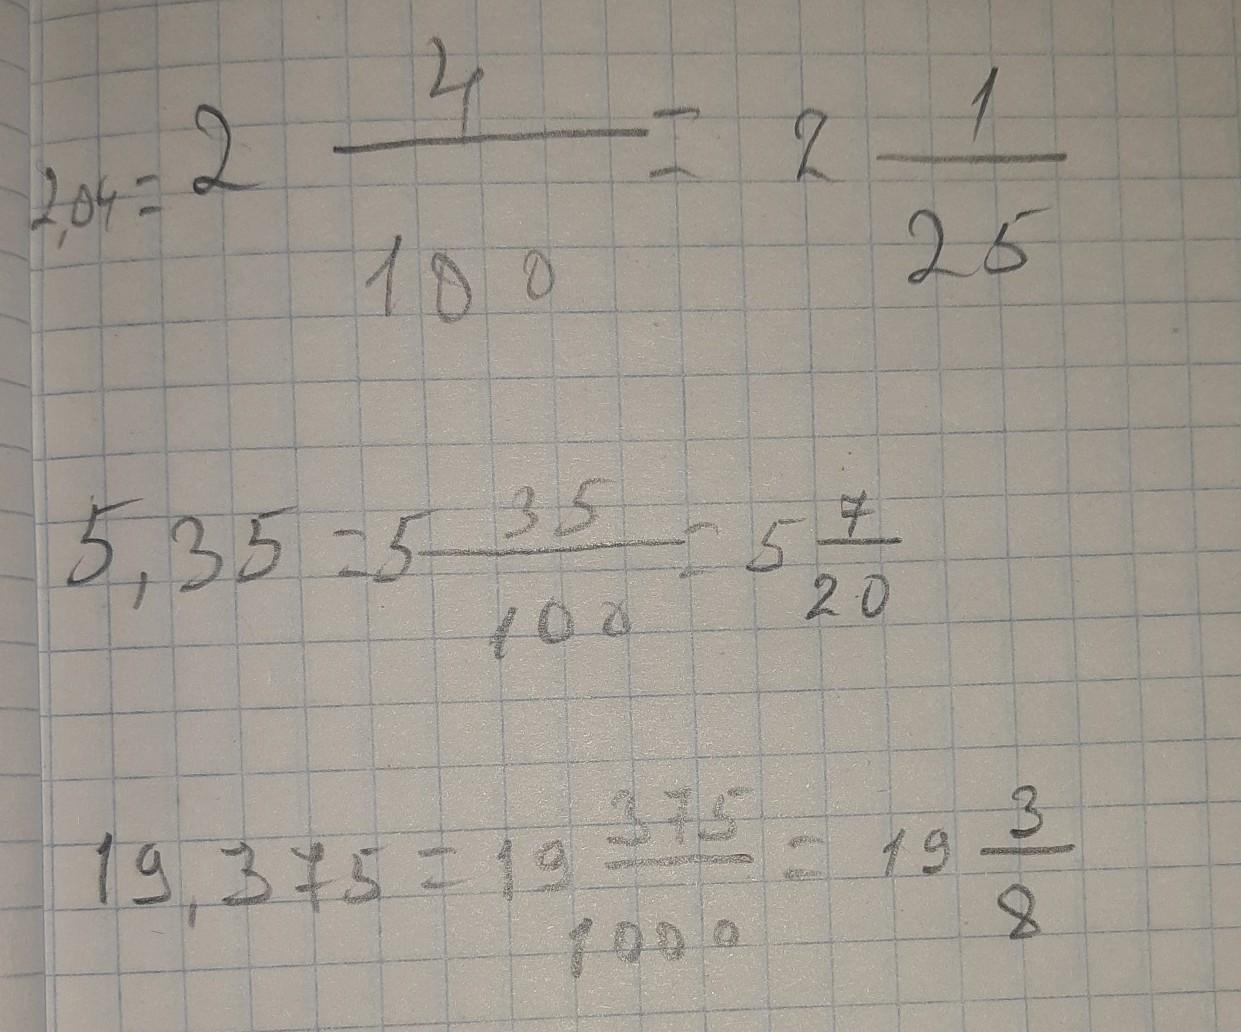 2,04 = 2 4/100 = 2 1/25
5,35 = 5 35/100 = 5 7/20
19,375 = 19 375/1000 = 19 3/8